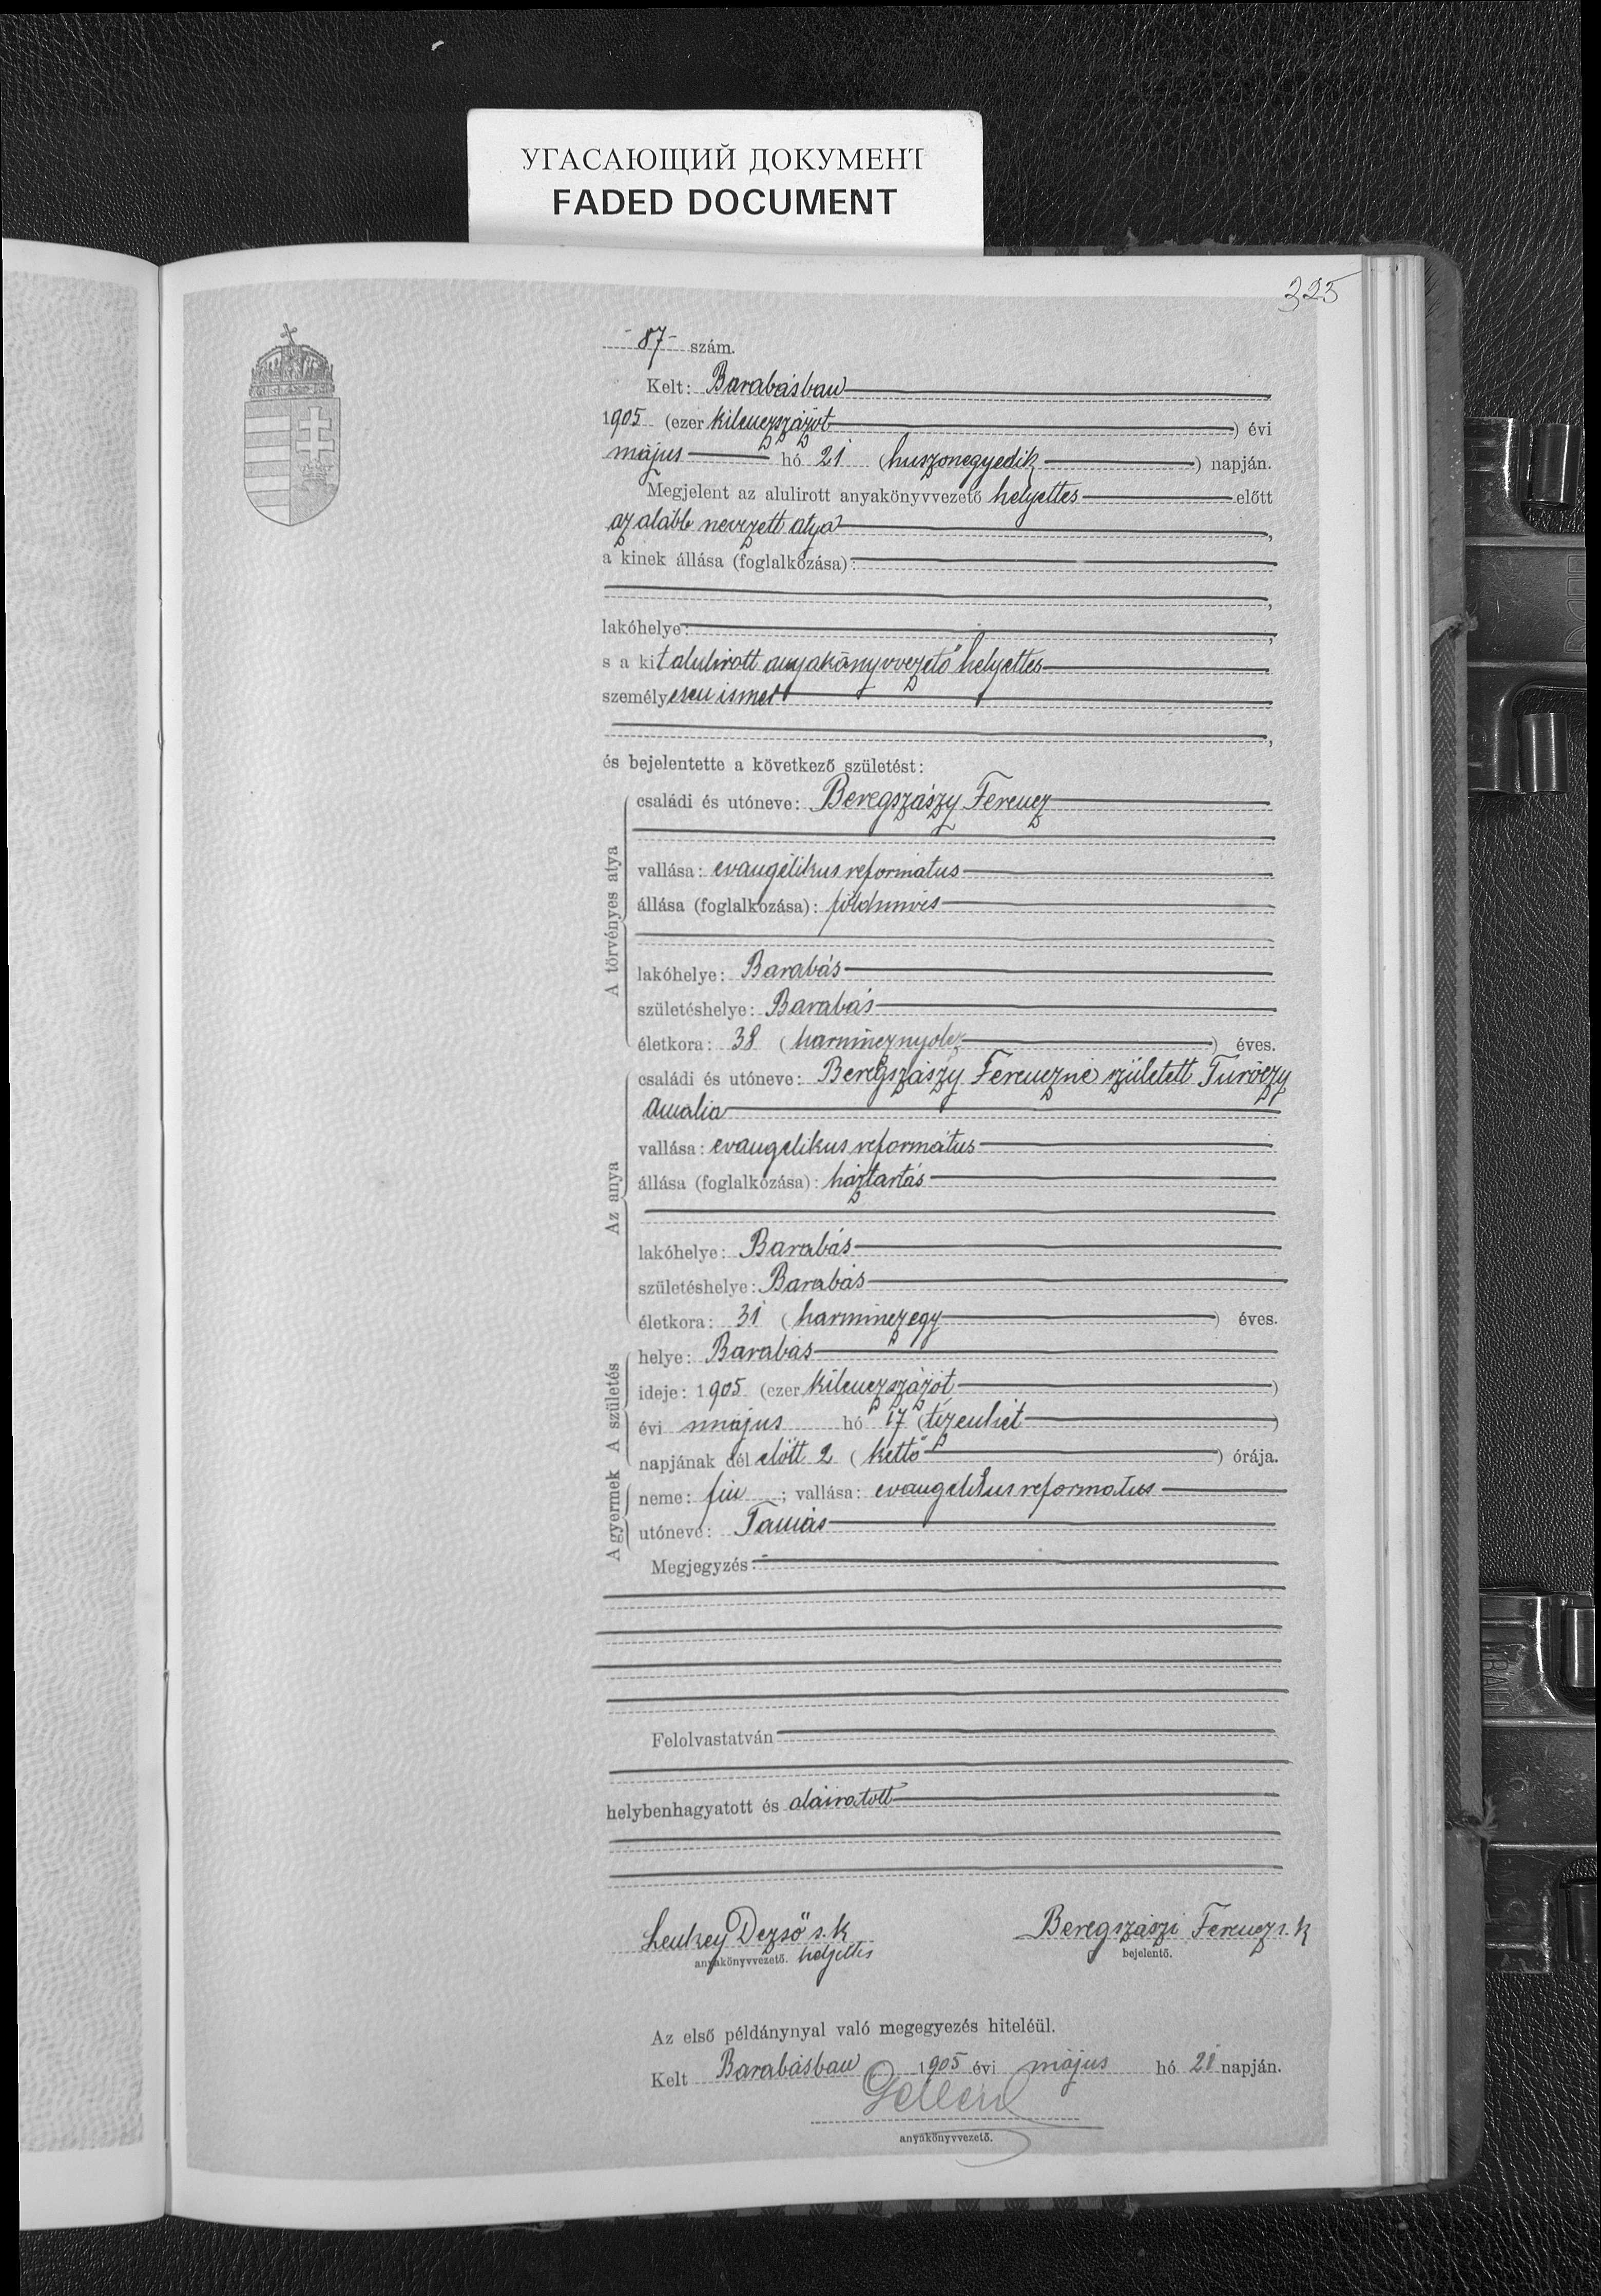 УГАСАЮЩИЙ ДОКУМЕНТ
FADED DOCUMENT
325
- 87 - szám.
Kelt: Barabásban
1905 (ezer kilenczszázöt) évi
május hó 21 (huszonegyedik) napján.
Megjelent az alulirott anyakönyvvezető helyettes előtt
az alább nevezett atya,
a kinek állása (foglalkozása):
lakóhelye:
s a kit alulirott anyakönyvvezető helyettes
személyesen ismer
és bejelentette a következő születést:
A törvényes atya
családi és utóneve: Beregszászy Ferencz
vallása: evangélikus református
állása (foglalkozása): földmives
lakóhelye: Barabás
születéshelye: Barabás
életkora: 38 (harmincznyolcz) éves.
Az anya
családi és utóneve: Beregszászy Ferenczné született Turóczy
Amalia
vallása: evangelikus református
állása (foglalkozása): háztartás
lakóhelye: Barabás
születéshelye: Barabás
életkora: 31 (harminczegy) éves.
A születés
helye: Barabás
ideje: 1905 (ezer kilenczszázöt)
évi május hó 17 (tizenhét)
napjának dél előtt 2 (kettő) órája.
A gyermek
neme: fiu; vallása: evangelikus reformatus
utóneve: Tamás
Megjegyzés:
Felolvastatván
helybenhagyatott és aláiratott
Lenkey Dezső s. k
anyakönyvvezető. helyettes
Beregszászi Ferencz s. k
bejelentő.
Az első példánynyal való megegyezés hiteléül.
Kelt Barabásban 1905 évi május hó 21 napján.
anyakönyvvezető.